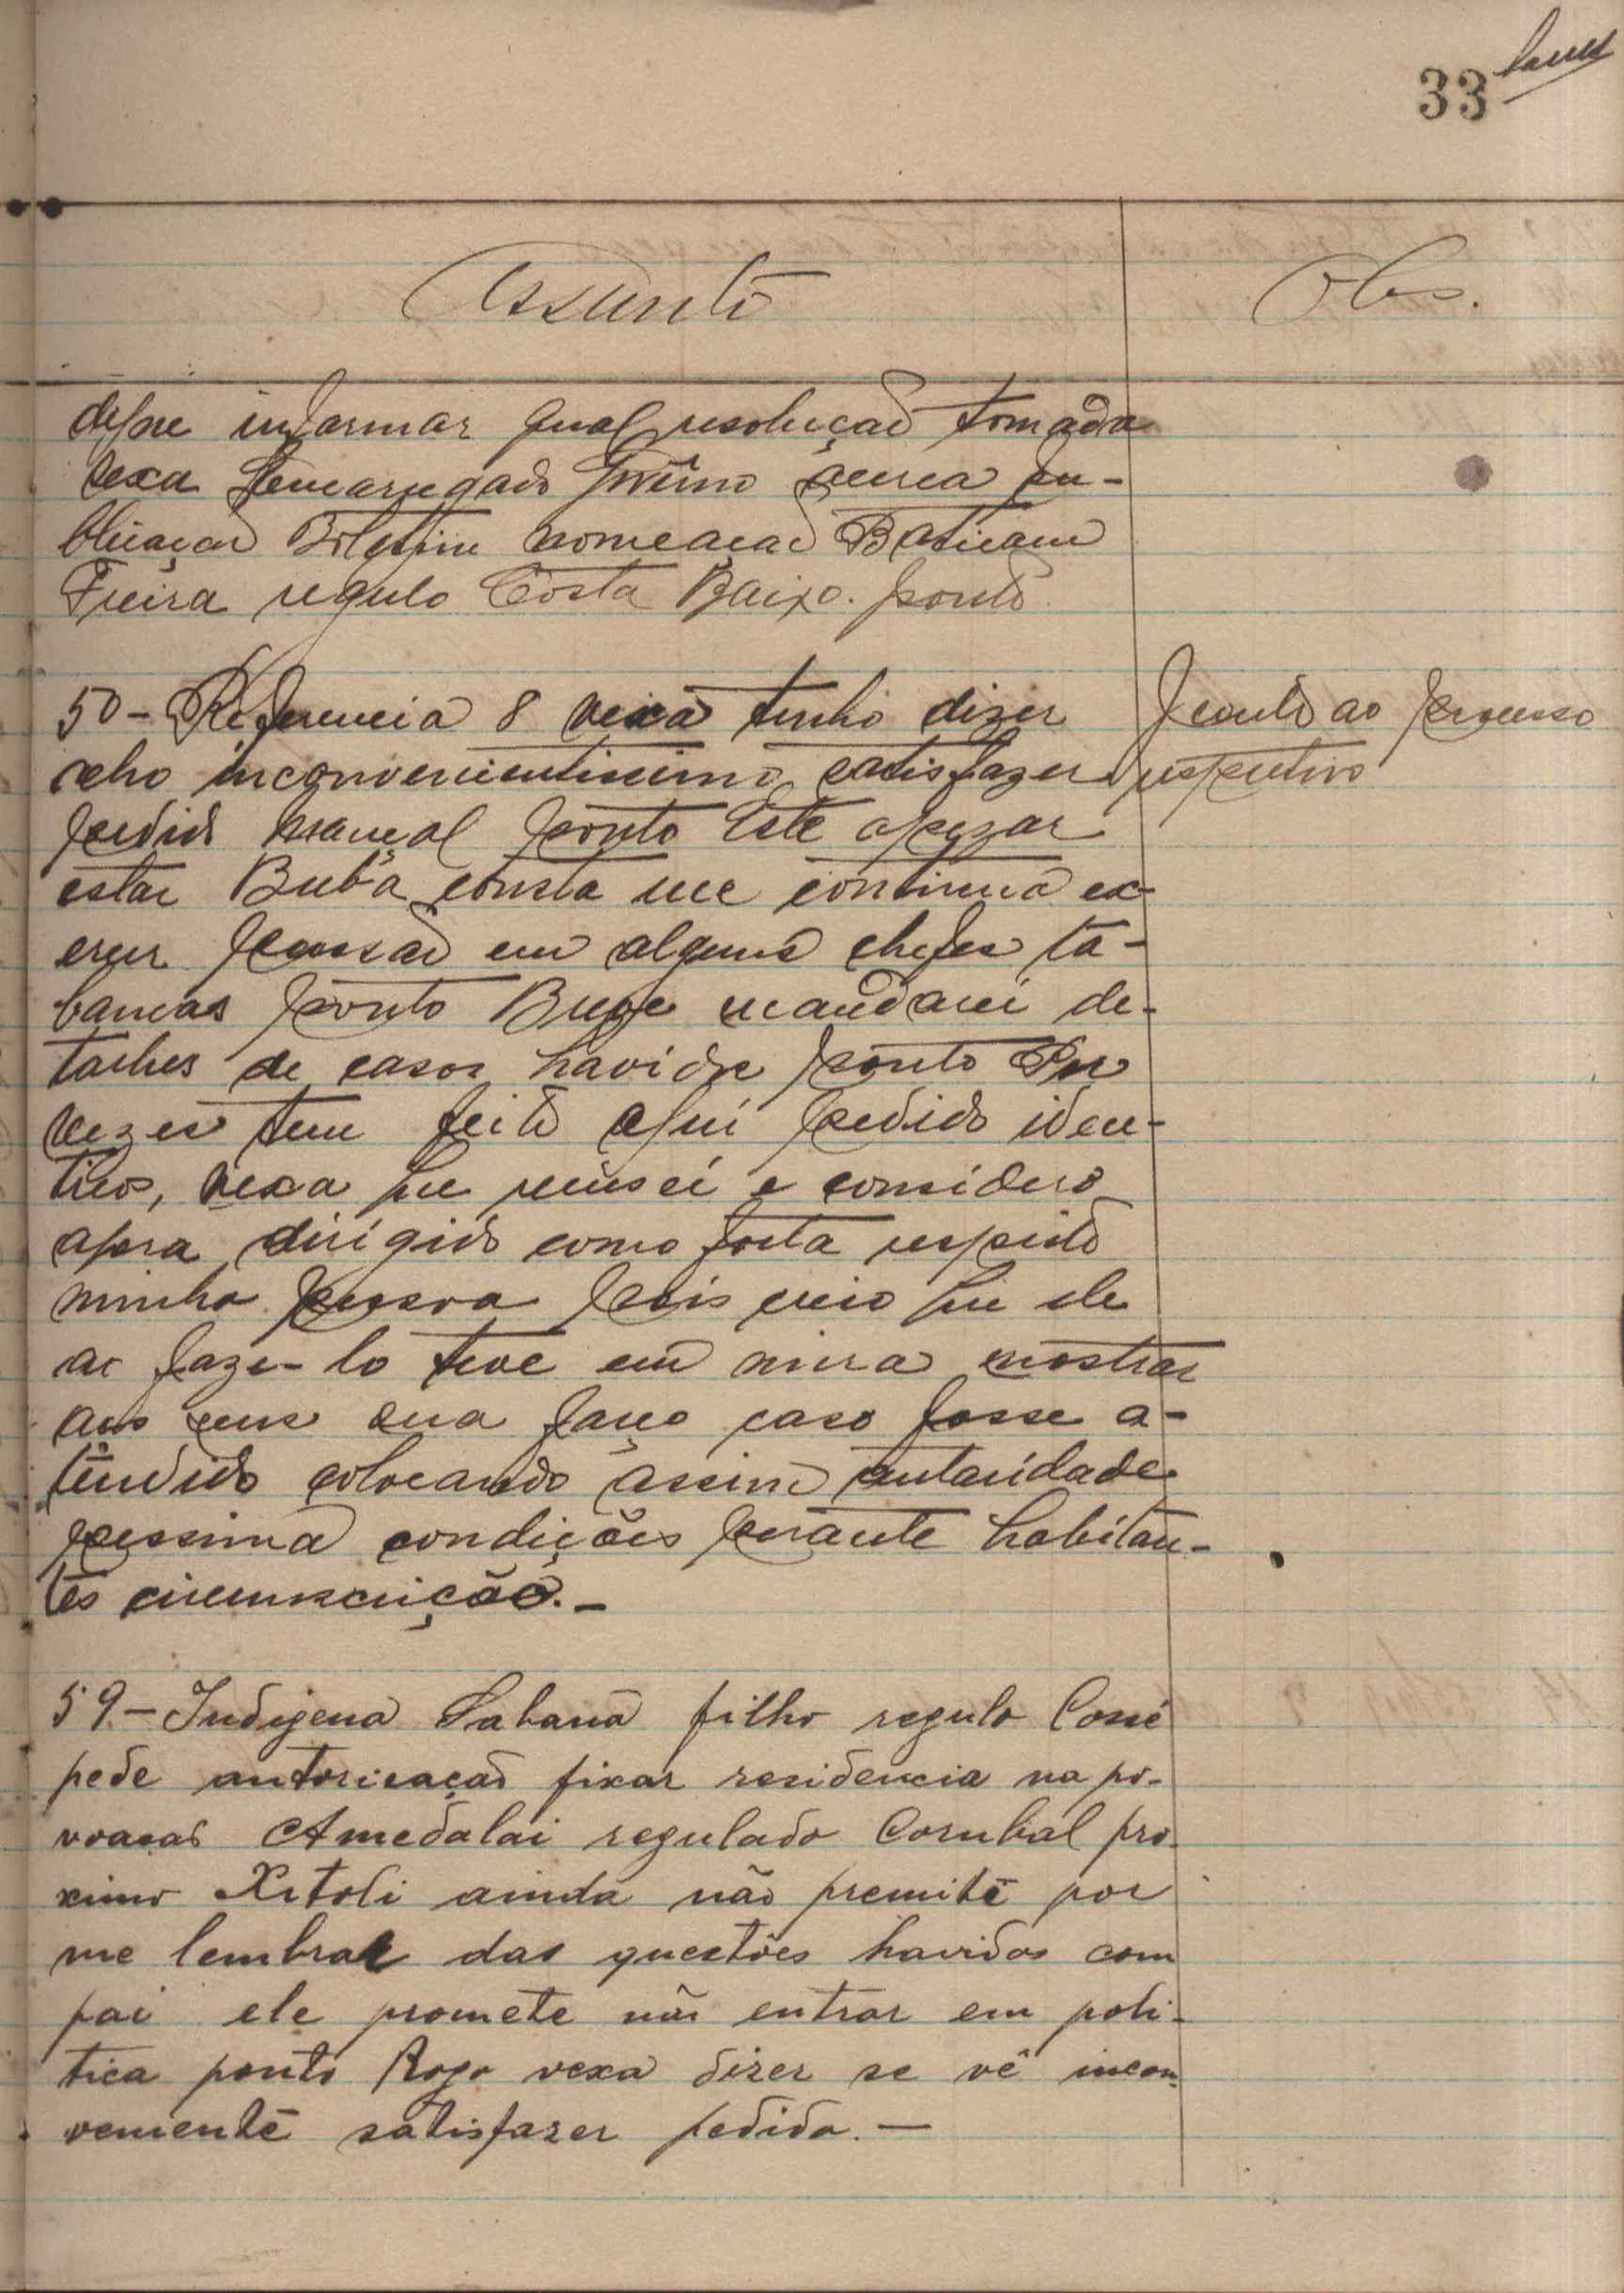 33
Assunto
Obs.
informar qual resolução tomada
vexa Encarregado Govêrno acerca pu-
blicaçao Boletim nomeaçao Baticam
Freira regulo Costa Baixo. ponto
50 - Referencia 8 vexa tenho dizer
acho inconvenientissimo satisfazer
pedido Mamcal ponto Este apezar
estar Buba consta me continua ex-
ercer pressao em alguns chefes ta-
bancas ponto Breve mandarei de-
talhes de casos havidos ponto Por
vezes tem feito aqui pedido iden-
ticos, vexa que recusei e considero
agora dirigido como falta respeito
minha pessoa pois creio que ele
ao faze-lo teve em mira mostrar
aos seus sua força caso fosse a-
tendido colocando assim autoridade
pessima condições perante habitan-
tes circunscrição. -
Junto ao processo
respectivo
59 - Indigena Sabana filho regulo Cossé
pede autorisaçao fixar residencia na po-
voaçao Amedalai regulado Corubal pro-
ximo Xitoli ainda não premite por
me lembrar das questões havidas com
pai ele promete não entrar em poli-
tica ponto Rogo vexa dizer se vê incon-
veniente satisfazer pedido. -